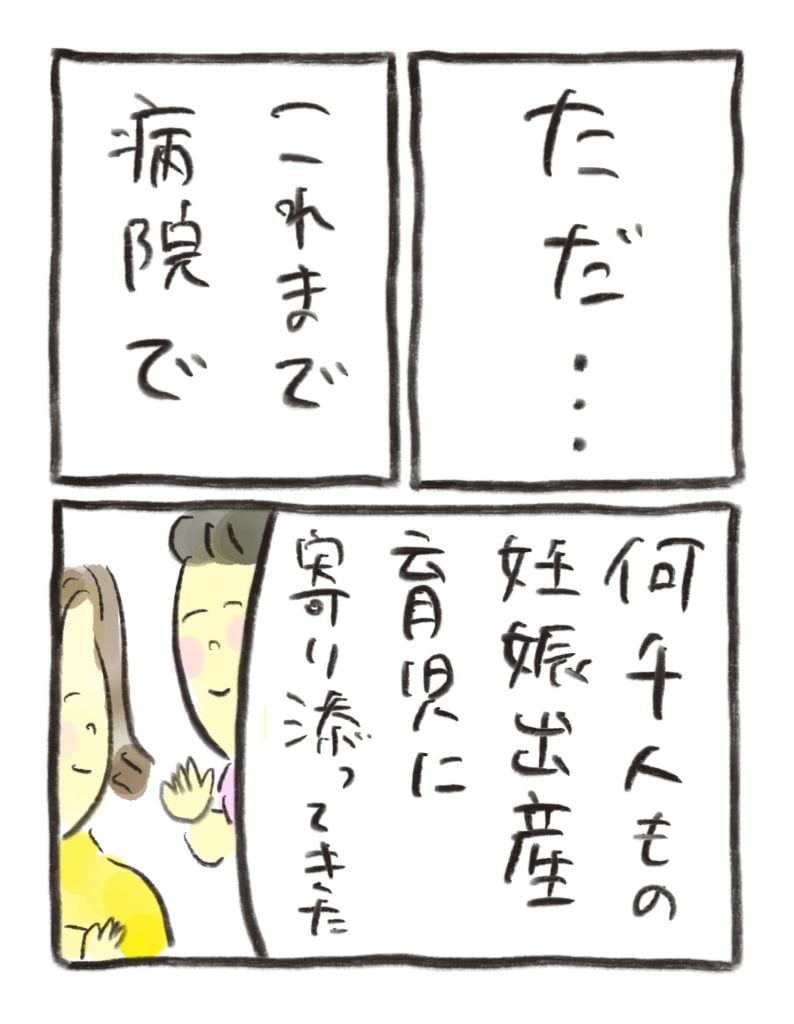 ただ…
これまで
病院で
何千人もの
妊娠出産
育児に
寄り添ってきた